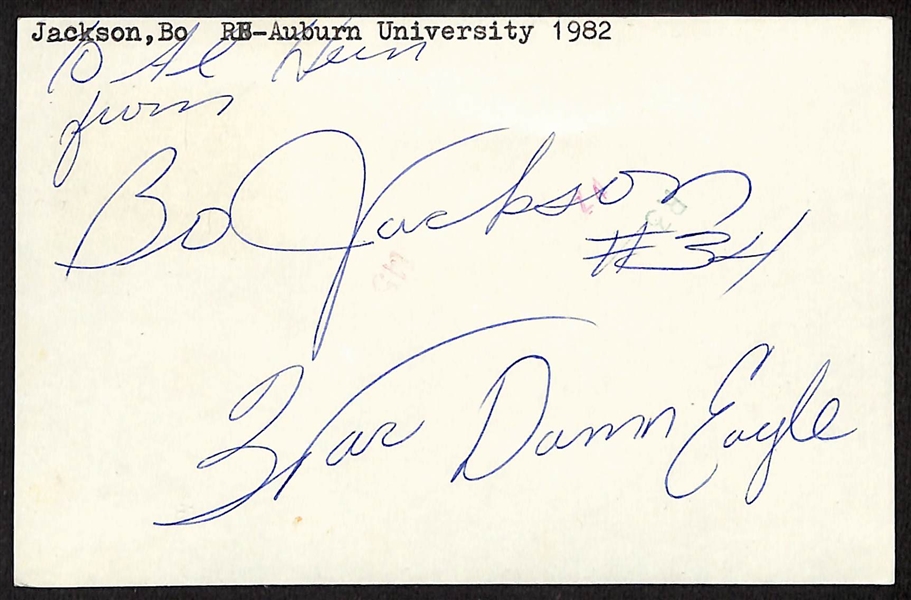 Jackson,Bo RB-Auburn University 1982
To Al
from
Bo Jackson
#34
War Damn Eagle